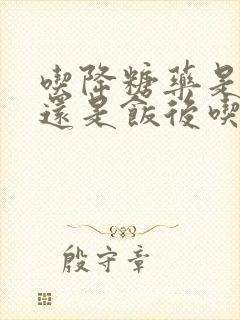 喫降糖藥是
還是飯後喫
殷守章